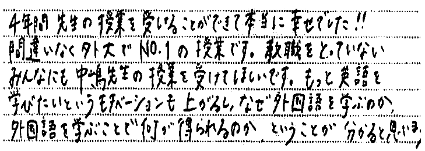 4年間 先生の授業を受いることができて本当に幸せでした!!
間違いなく外大でNO.1の授業です。教職をとっていない
みんなにも中嶋先生の授業を受けてほしいです。もっと英語を
学びたいというモチベーションも上がるし、なぜ外国語を学ぶのか、
外国語を学ぶことで何が得られるのか、ということが分かると思います